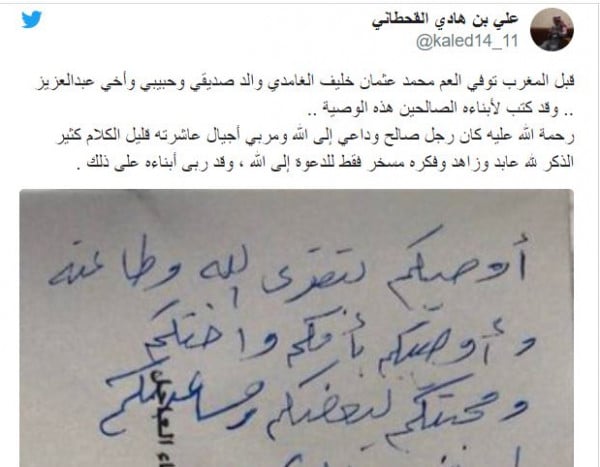 علي بن هادي القحطاني
@kaled14_11
قبل المغرب توفي العم محمد عثمان خليف الغامدي والد صديقي وحبيبي وأخي عبدالعزيز
.. وقد كتب لأبناءه الصالحين هذه الوصية ..
رحمة الله عليه كان رجل صالح وداعي إلى الله ومربي أجيال عاشرته قليل الكلام كثير
الذكر لله عابد وزاهد وفكره مسخر فقط للدعوة إلى الله ، وقد ربى أبناءه على ذلك .
أوصيكم بتقوى الله وطاعته
وأوصيكم بأمكم واختكم
ومحبتكم لبعضكم ومساعدتكم
العاجل